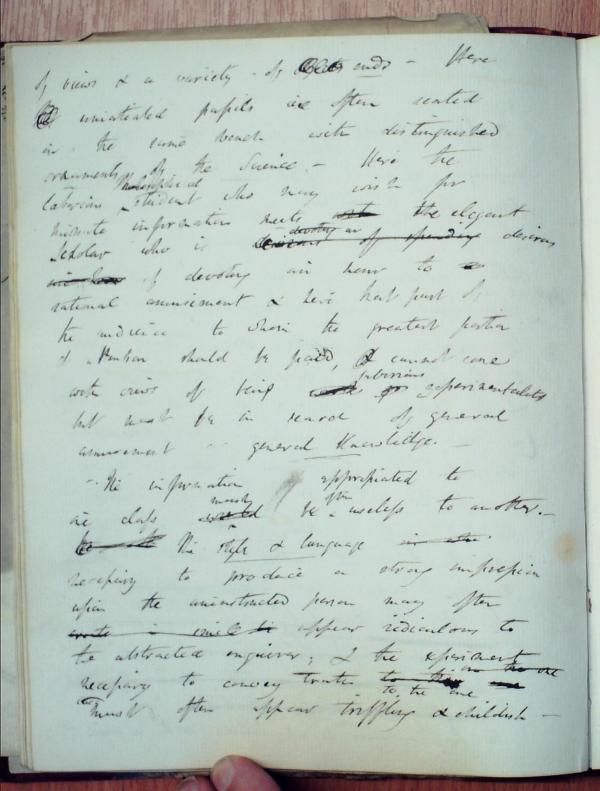 of views & a variety - of ends - Here
uninitiated pupils are often seated
in the same bench with distinguished
ornaments of the Science. - Here the
laborious Philosophical student who may wish for
minute information meets the elegant
Scholar who is desirous
of devoting an hour to
rational amusement & here that part of
the audience to whom the greatest portion
of attention should be paid, cannot come
with views of being laborious experimentalists
but must be in search of general
amusement general knowledge. -
The information appropriated to
one class must be often useless to another. -
The style & language
necessary to produce a strong impression
upon the uninstructed person may often
appear ridiculous to
the abstracted enquirer; & the experiment
necessary to convey truths to the one
must often appear triffling & childish -